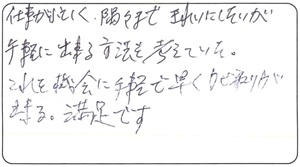 仕事が忙しく、隅々まできれいにしたいが
手軽に出来る方法を考えていた。
これを機会に手軽で早く
来る。満足です